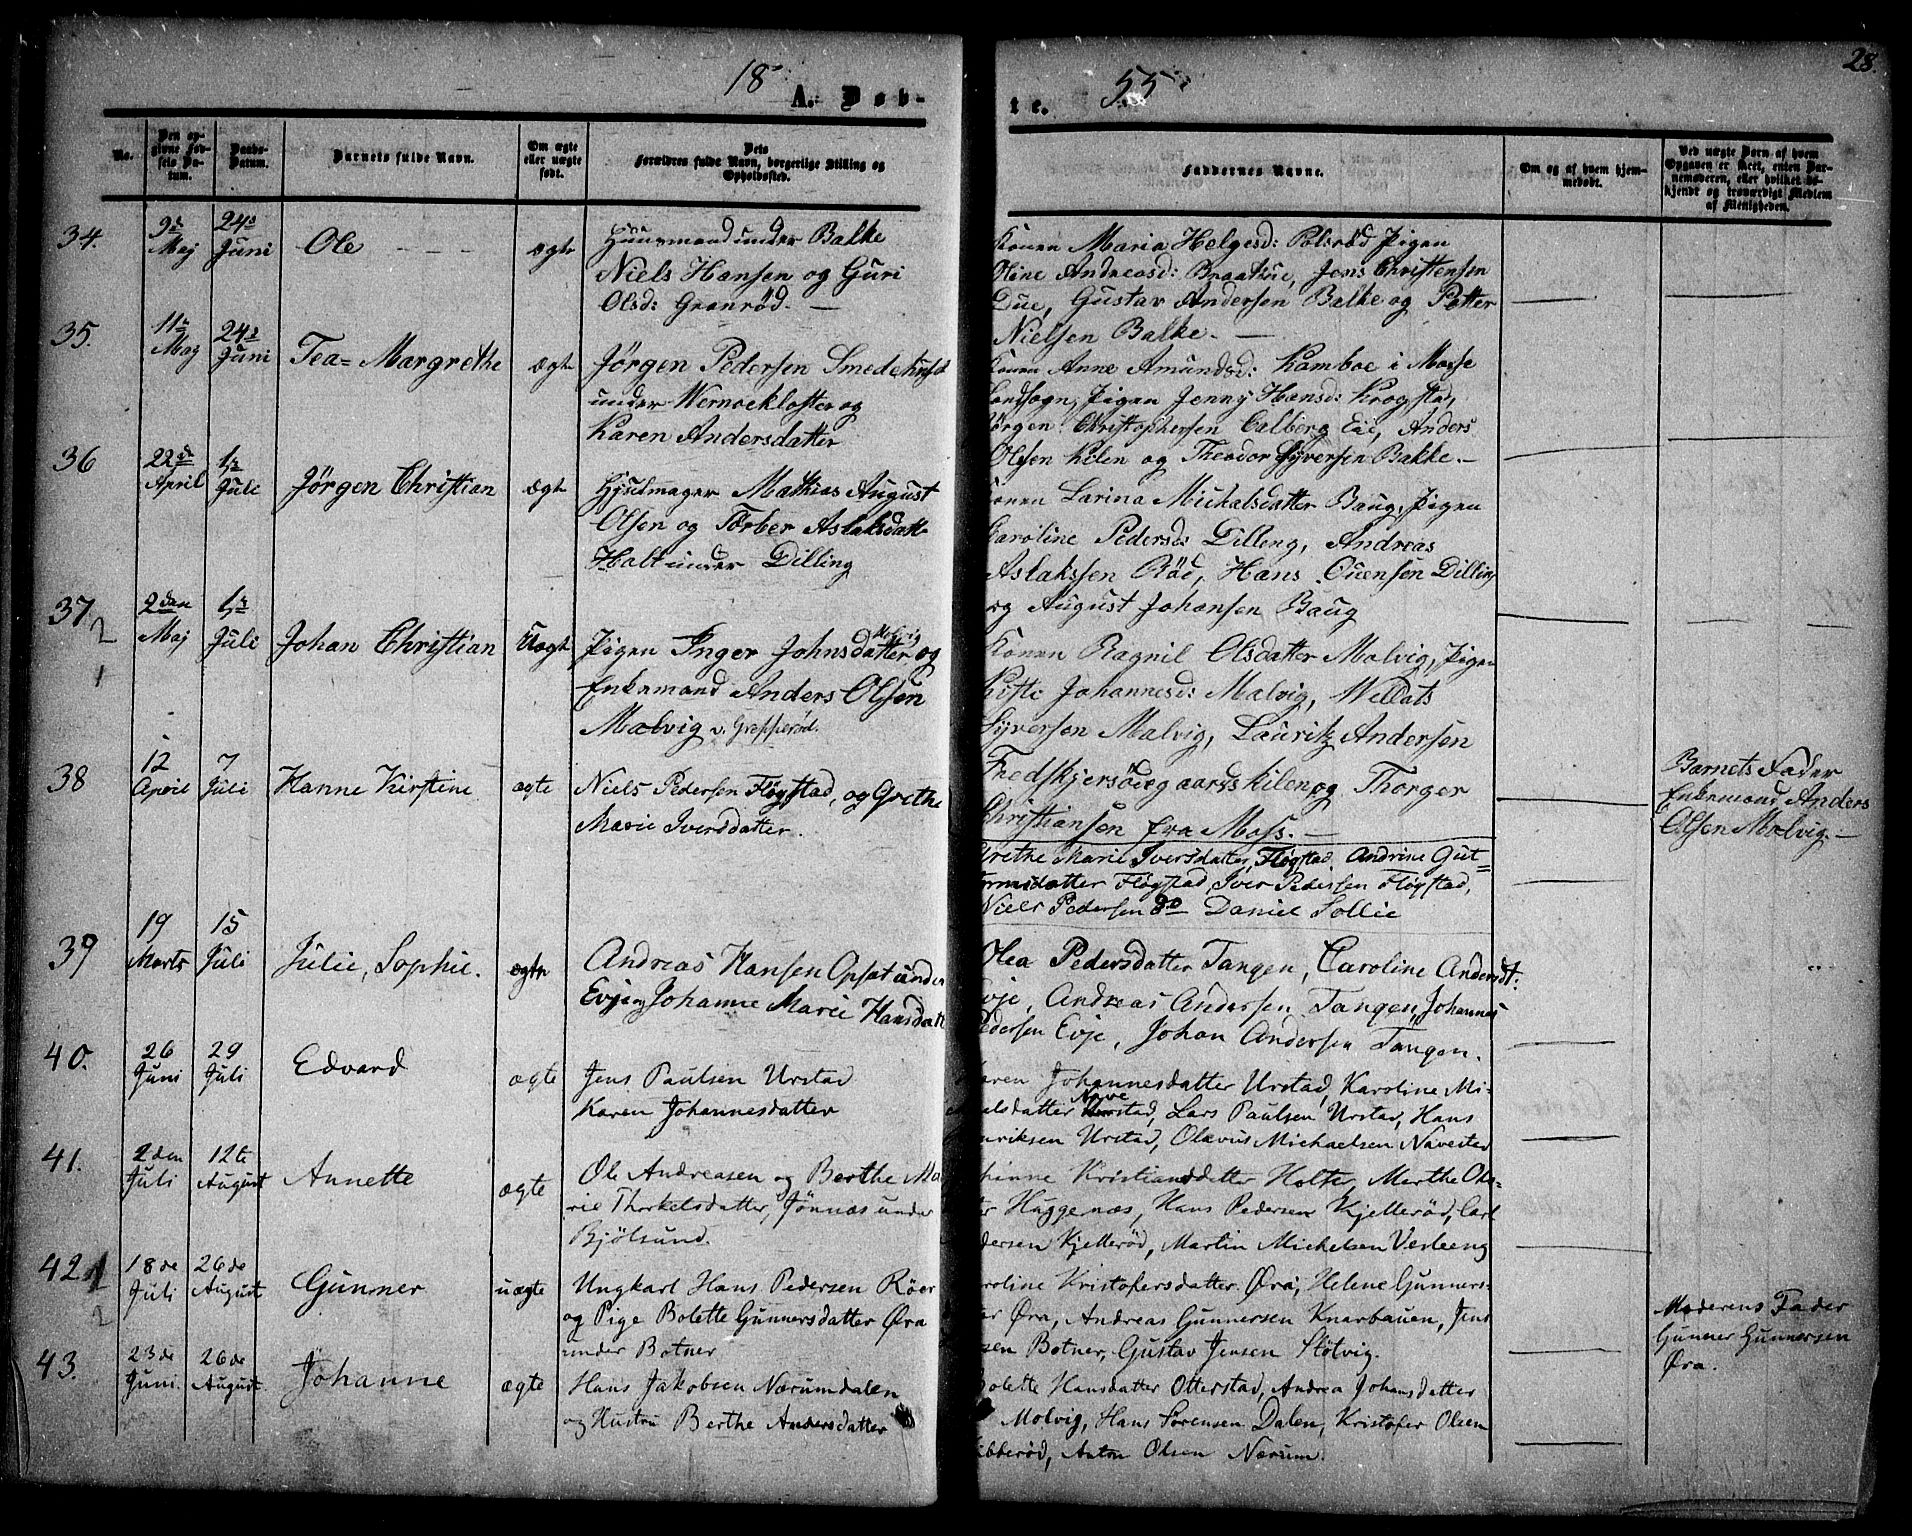 28.
18
A. Døb-
te.
55
No.
Den op-
givne Fød-
sels Da-
tum.
Daabs-
Datum.
Barnets fulde Navn.
Om ægte
eller uægte
født.
Dets
Forældres fulde Navn, borgerlige Stilling og
Opholdssted.
Faddernes Navne.
Om og af hvem hjem-
medøbt.
Ved uægte Børn af hvem
Opgaven er skeet, enten Bar-
nemoderen, eller hvilket be-
kjendt og troværdigt Medlem
af Menigheden.
34.
9de
Maj
24de
Juni
Ole
ægte
Huusmand under Balke
Niels Hansen og Guri
Olsd: Granrød. —
Konen Maria Helgesd: Polsrød Pigen
Oline Andreasd: Braatene, Jens Christensen
Due, Gustav Andersen Balke og Petter
Nielsen Balke. —
35.
11te
Maj
24de
Juni
Tea= Margrethe
ægte
Jörgen Pedersen Smedehuset
under Wernoekloster og
Karen Andersdatter
Konen Anne Amundsd: Kamboe i Mosse
Landsogn, Pigen Jenny Hansd: Krogstad,
Jörgen Christophersen Calberg Eie, Anders
Olsen Kilen og Theodor Syversen Bakke. —
36
22de
April
1te
Juli
Jörgen Christian
ægte
Hjulmager Mathias August
Olsen og Torber Aslaksdatt
Holt under Dilling
Konen Larina Michalsdatter Baug, Pigen
Caroline Pedersd: Dilleng, Andreas
Aslakssen Röd, Hans Ouensen Dilling
og August Johansen Baug
37.
2
1
2den
Maj
1te
Juli
Johan Christian
Uægte
Pigen Inger Johnsdatter Molvig og
Enkemand Anders Olsen
Molvig v. Grepperød.
Konen Ragnil Olsdatter Molvig, Pigen
Johannesd: Malvig,
Syversen Malvig, Lauritz Andersen
Fredskjersöiegaardskilen og Thorger
Christiansen fra Moss. —
Barnets Fader
Enkemand Anders
Olsen Molvig. —
38
12
April
7
Juli
Hanne Kirstine
ægte
Niels Pedersen Fløgstad, og Grethe
Marie Iversdatter.
Grethe Marie Iversdatter Fløgstad, Andrine Gut=
tormsdatter Fløgstad, Iver Pedersen Fløgstad,
Niels Pedersen do Daniel Sollie
39
19
Marts
15
Juli
Julie, Sophie.
ægte
Andreas Hansen Opsat under
Evje og Johanne Marie Hansdatt
Olea Pedersdatter Tangen, Caroline Andersdt:
Evje, Andreas Andersen Tangen, Johannes
Pedersen Evje, Johan Andersen Tangen.
40.
26
Juni
29
Juli
Edvard
ægte
Jens Paulsen Urstad
Karen Johannesdatter
Karen Johannesdatter Urstad, Karoline Mi-
kelsdatter Nave stad, Lars Paulsen Urstad, Hans
Henriksen Urstad, Olavus Michaelsen Navestad
41.
2den
Juli
12te
August
Annette
ægte
Ole Andreasen og Berthe Ma
rie Thorkelsdatter, Jönnæs under
Bjölsund.
Kristiansdatter Holte, Marthe Ols-
Huggenæs, Hans Pedersen Kjellerød, Carl
Pedersen Kjellerød, Martin Michelsen Verleeng
42.
1
2
18de
Juli
26de
August
Gunner
uægte
Ungkarl Hans Pedersen Röer
og Pige Bolette Gunnersdatter Øra
under Botner
Karoline Kristofersdatter Øra, Helene Gunners-
Øra, Andreas Gunnersen Knarbauen, Jens
sen Botner, Gustav Jensen Stölvig.
Moderens Fader
Gunner Gunnersen
Øra.
43.
23de
Juni
26de
August
Johanne
ægte
Hans Jakobsen Nærumdalen
og Hustru Berthe Andersdatter
Bolette Hansdatter Otterstad, Andrea Johansdatter
Molvig, Hans Sörensen Dalen, Kristofer Olsen
Anton Olsen Nærum.